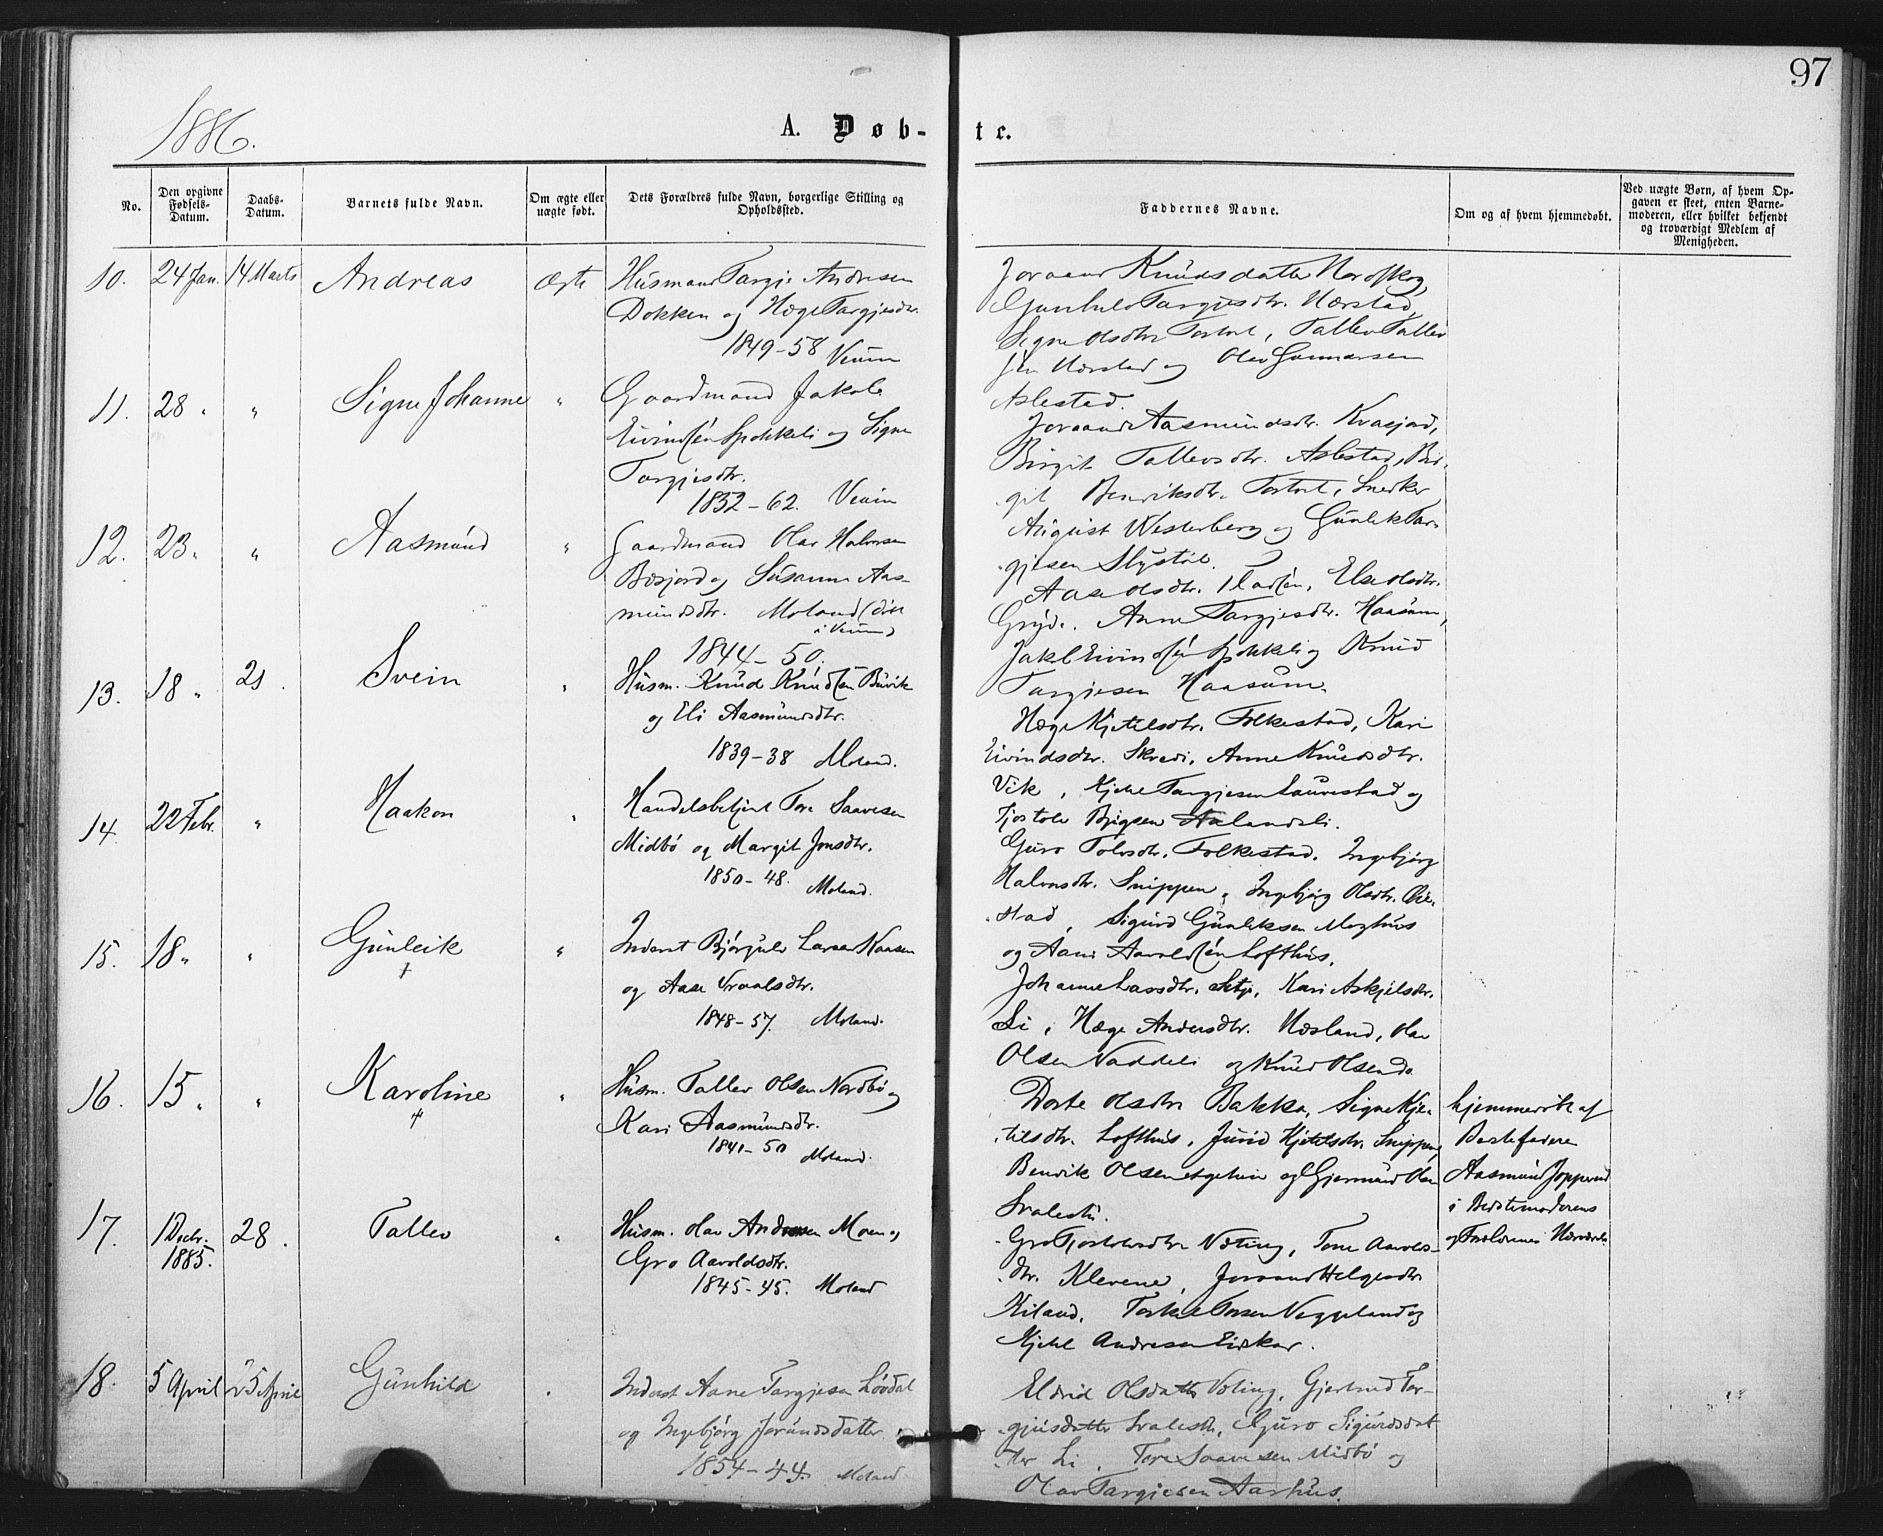 97
1886.
A. Døb-
te.
No.
Den opgivne
Fødsels-
Datum.
Daabs-
Datum.
Barnets fulde Navn.
Om ægte eller
uægte født.
Dets Forældres fulde Navn, borgerlige Stilling og
Opholdssted.
Faddernes Navne.
Om og af hvem hjemmedøbt.
Ved uægte Børn, af hvem Op-
gaven er skeet, enten Barne-
moderen, eller hvilket bekjendt
og troværdigt Medlem af
Menigheden.
10. 24 Jan. 14 Marts Andreas Ægte
Husmand Targje Andresen
Dokken og Hæge Targjesdtr.
1849-58 Veum
Joraand Knudsdatter Nordskog,
Gunhild Targjesdtr. Nærstad,
Signe Olsdtr Tortvet, Tallev Tallev
sen Nærstad og Olav Gunnarsen
Aslestad.
11. 28 " " Signe Johanne "
Gaardmand Jakob
Eivindsen Spokkeli og Signe
Targjesdtr.
1832-62. Veum
Joraand Aasmundsdtr. Kvasjord,
Birgit Tallevsdtr. Aslestad, Bir-
git Benviksdtr. Tortvet, Snedker
August Westerberg og Gunlek Tar-
gjesen Slystøl.
12. 23 " " Aasmund "
Gaardmand Olav Halvorsen
Bøsjord og Susanne Aas-
mundsdtr. Moland (dør
i Veum)
1844-50.
Aase Olsdtr. Else Olsdtr.
Grýde. Anne Targjesdtr. Haasum,
Jakob Eivindsen Spokkeli og Knud
Targjesen Haasum.
13. 18 " 21. Svein "
Husm. Knud Knudsen Buvik
og Eli Aasmundsdtr.
1839-38 Moland.
Hæge Kjetilsdtr. Folkestad, Kari
Eivindsdtr. Skredi, Anne Knudsdtr.
Vik, Kjetil Targjesen Laurestad og
Tjostolv Aalandsli.
14. 22 Febr. " Haakon "
Handelsbetjent Tore Saavesen
Midbø og Margit Jonsdtr.
1850-48. Moland.
Guro Folkestad. Ingebjørg
Halvorsdtr. Snippen, Ingebjørg Olsdtr.
stad, Sigurd Gunleksen Moghus
og Aani Aavoldsen Lofthus.
15. 18 " " Gunleik "
+
Inderst Bjørgulv Larsen Kaasen
og Aase Vraalsdtr.
1848-57. Moland.
Johanne Larsdtr. Setje, Kari Askjelsdtr.
Li, Hæge Andersdtr. Næsland, Olav
Olsen Naddeli og Knud Olsen do
16. 15 " " Karoline "
+
Husm. Tallev Olsen Nordbø og
Kari Aasmundsdtr.
1841-50 Moland.
Dorte Olsdtr Bakka, Signe Kje-
tilsdtr. Lofthus, Jurid Kjetilsdtr. Snippen,
Benvik Olsen og Gjermund Olsen
Svalestu.
hjemmedøbt af
Bestefaderen
Aasmund Jopperud
i Bedstemoderens
og Forældrenes Nærværelse
17. 1 Decbr. 28. Tallev "
1885.
Husm. Olav Andresen Moen og
Gro Aavoldsdtr.
1845-45. Moland
Gro Tjostolvsdtr Næting, Tone Aavolds-
dtr. Klevene, Joraand Helgesdtr
Kiland, Torkel Torsen Veggeland og
Kjetil Andresen Eidskar.
18. 5 April 25 April Gunhild "
Inderst Aane Targjesen Løvdal
og Ingebjørg Jorundsdatter.
1854-44. Moland
Eldrid Olsdatter Voting, Gjertrud Tar-
gjesdatter Svalestu, Guro Sigurdsdat
ter Li, Tore Saavesen Midbø og
Olav Targjesen Aarhus.